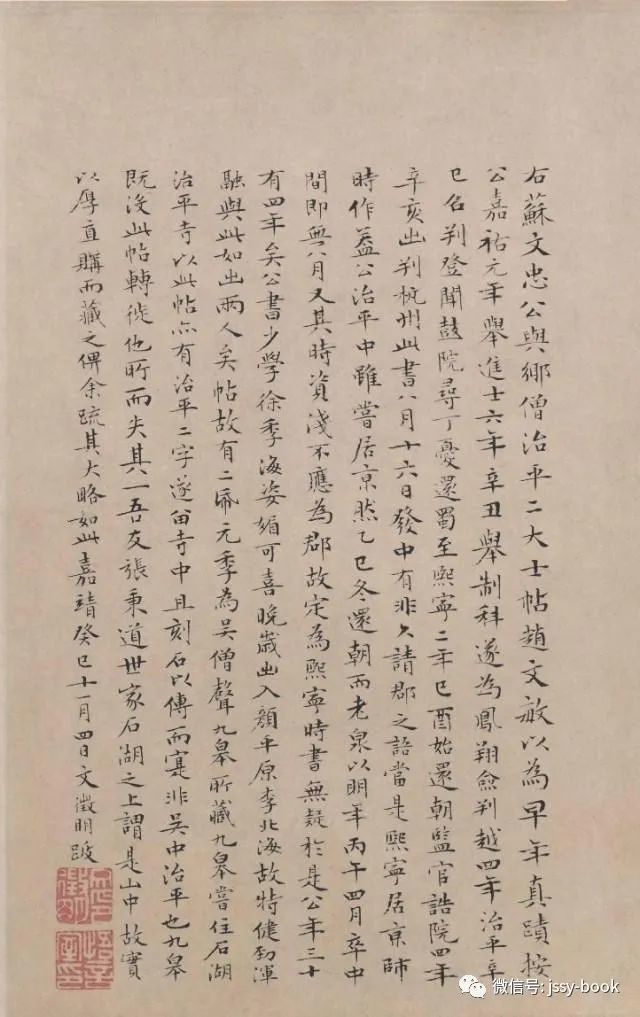 右蘇文忠公與鄉僧治平二大士帖趙文敏以為早年真蹟按
公嘉祐元年舉進士六年辛丑舉制科遂為鳳翔僉判越四年治平辛
巳名判登聞鼓院尋丁憂還蜀至熙寧二年己酉始還朝監官誥院四年
辛亥出判杭州此書八月十六日發中有非久請郡之語當是熙寧居京師
時作蓋公治平中雖嘗居京然乙巳冬還朝而老泉以明年丙午四月卒中
間即無八月又其時資淺不應為郡故定為熙寧時書無疑於是公年三十
有四年矣公書少學徐季海姿媚可喜晚歲出入顏平原李北海故特健勁渾
融與此如出兩人矣帖故有二帋元季為吳僧聲九皋所藏九皋嘗住石湖
治平寺以此帖亦有治平二字遂留寺中且刻石以傳而寔非吳中治平也九皋
既沒此帖轉徙他所而失其一吾友張秉道世家石湖之上謂是山中故實
以厚直購而藏之俾余疏其大略如此嘉靖癸巳十一月四日文徵明跋
微信号: jssy-book